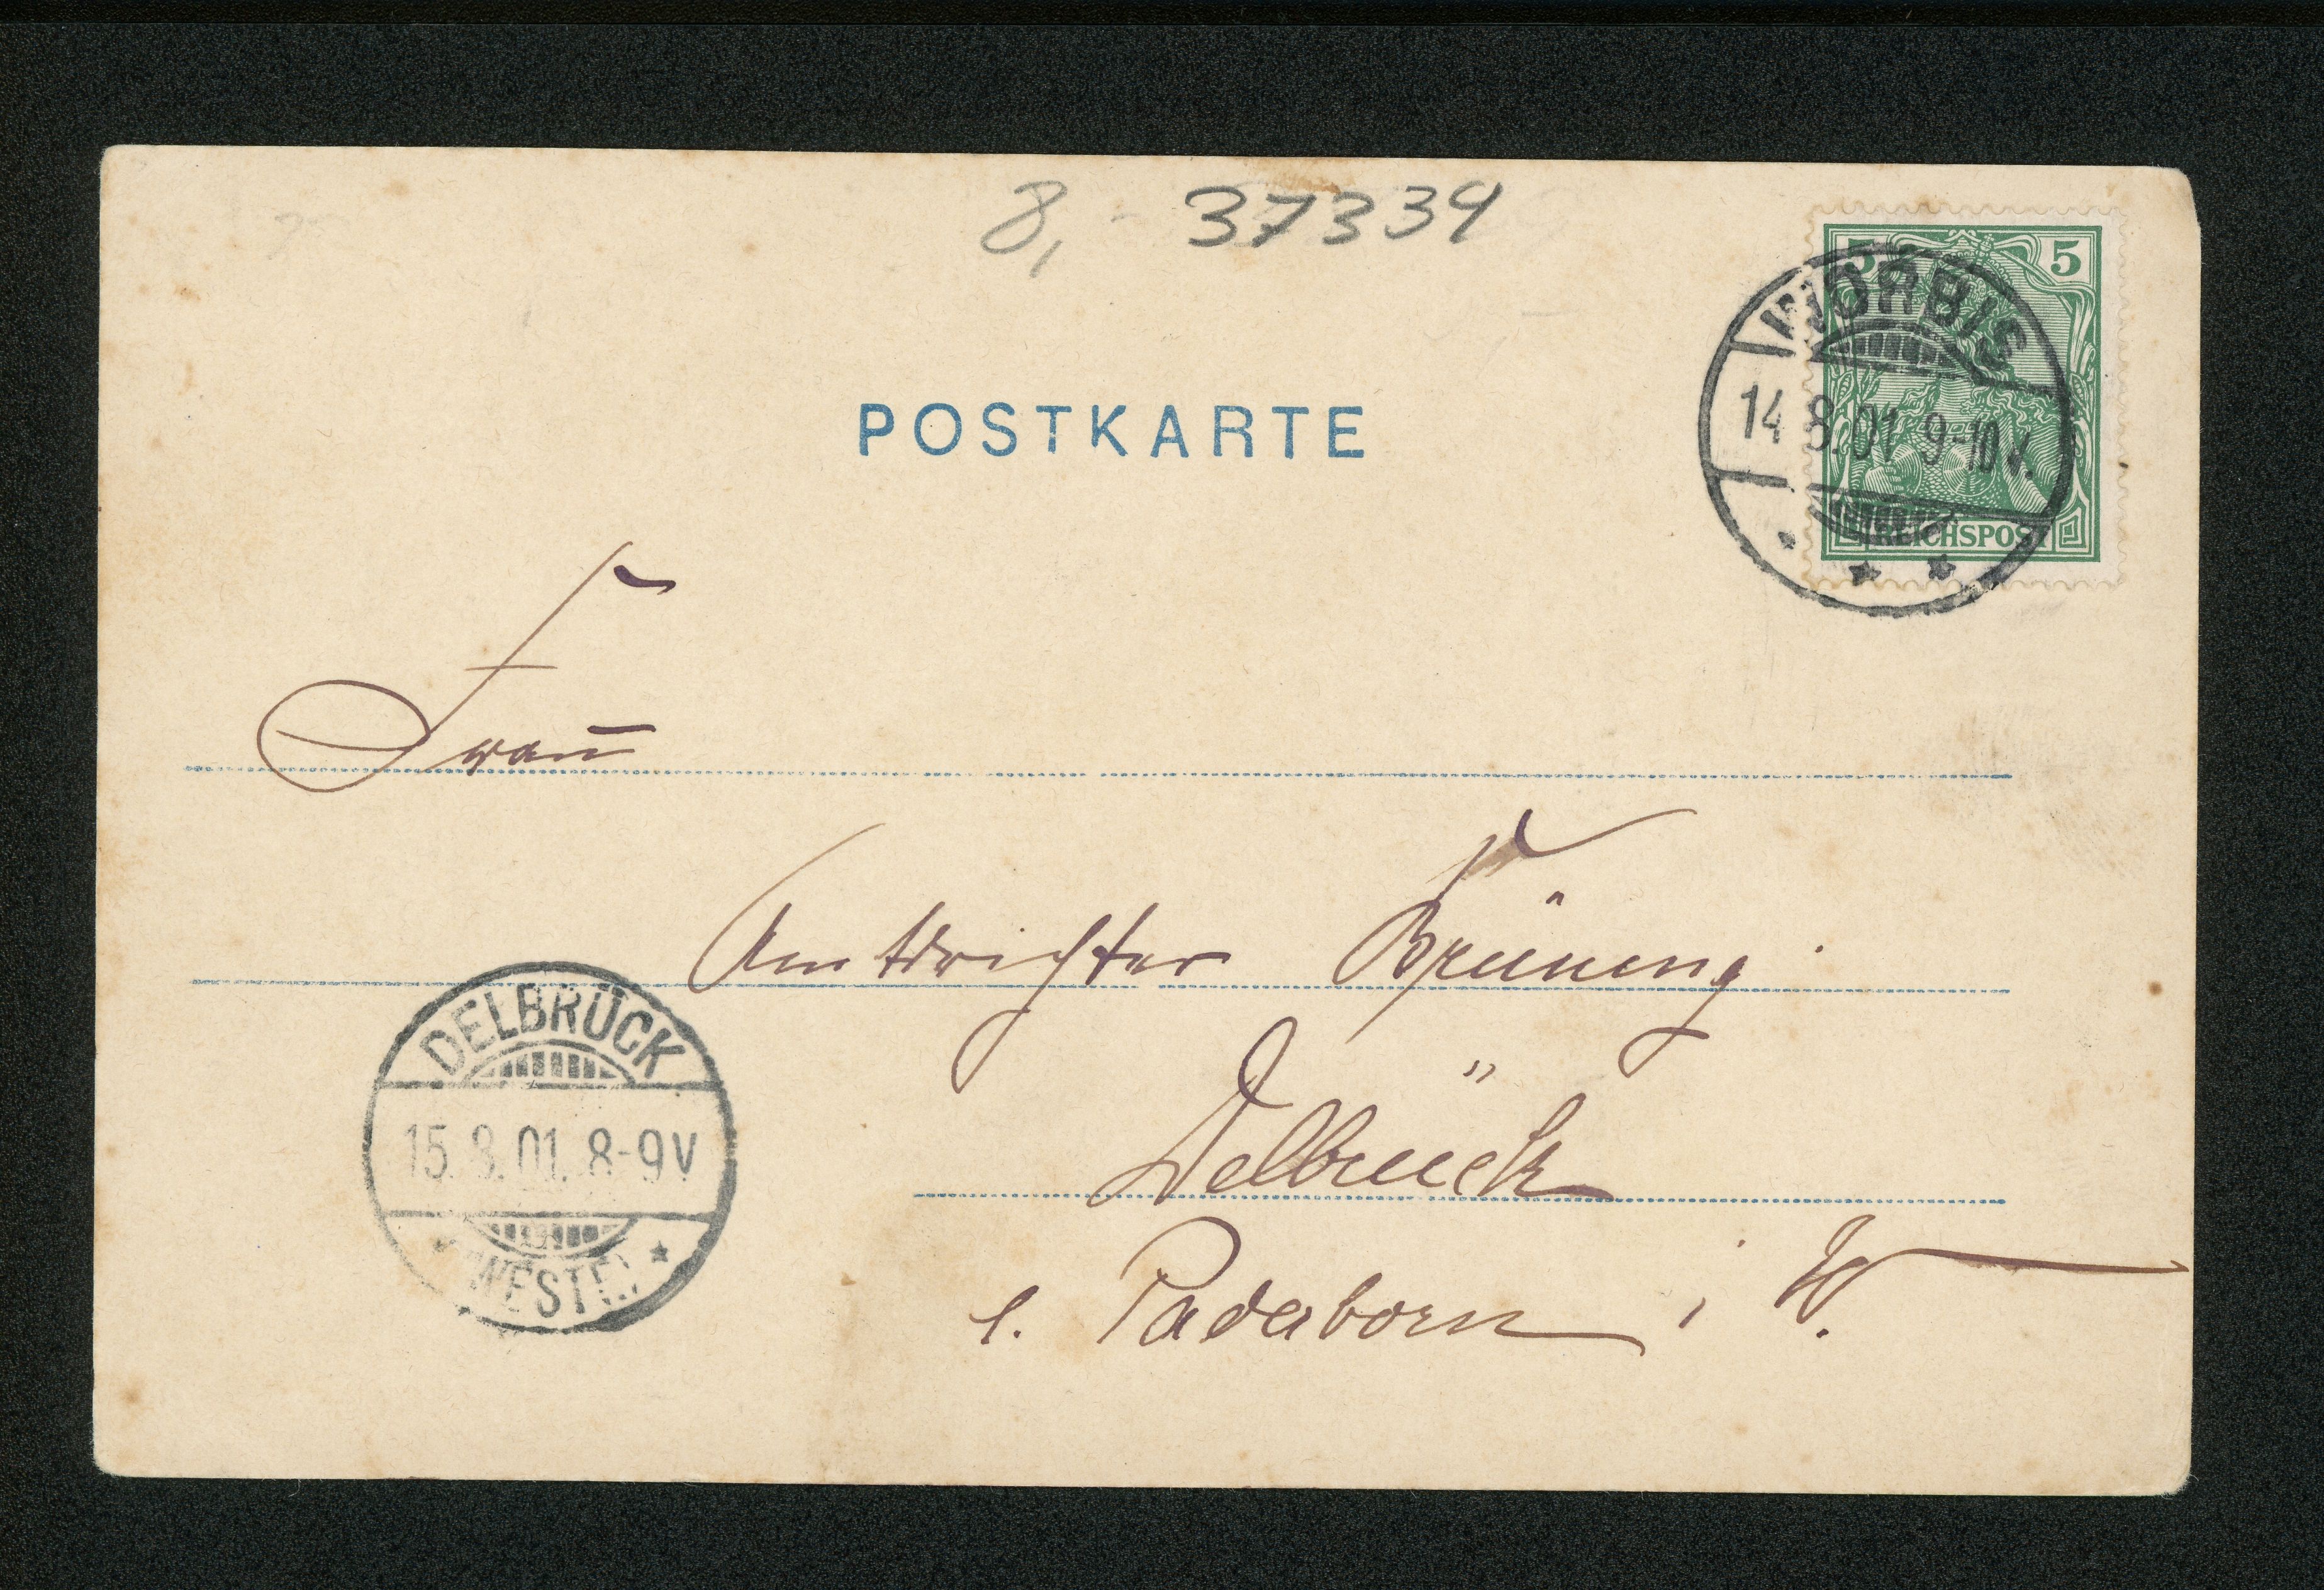 8,- 37339
5 5
WORBIS
14 8.01 9-10 V.
REICHSPOST
POSTKARTE
Frau
Amtsrichter Brüning
Delbrück
b. Paderborn i W.
DELBRÜCK
15.8.01. 8-9V
(WESTF.)